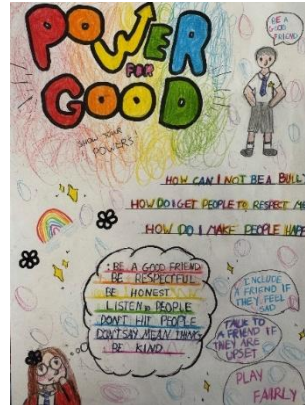 POWER
FOR
GOOD
BE A
GOOD
FRIEND
SHOW YOUR
POWERS!
HOW CAN I NOT BE A BULL
HOW DO I GET PEOPLE TO RESPECT ME
HOW DO I MAKE PEOPLE HAPP
BE A GOOD FRIEND
BE RESPECTFUL
BE HONEST
LISTEN TO PEOPLE
DON'T HIT PEOPLE
DON'T SAY MEAN THINGS
BE KIND
INCLUDE
A FRIEND IF
THEY FEEL
SAD
TALK TO
A FRIEND IF
THEY ARE
UPSET
PLAY
FAIRLY